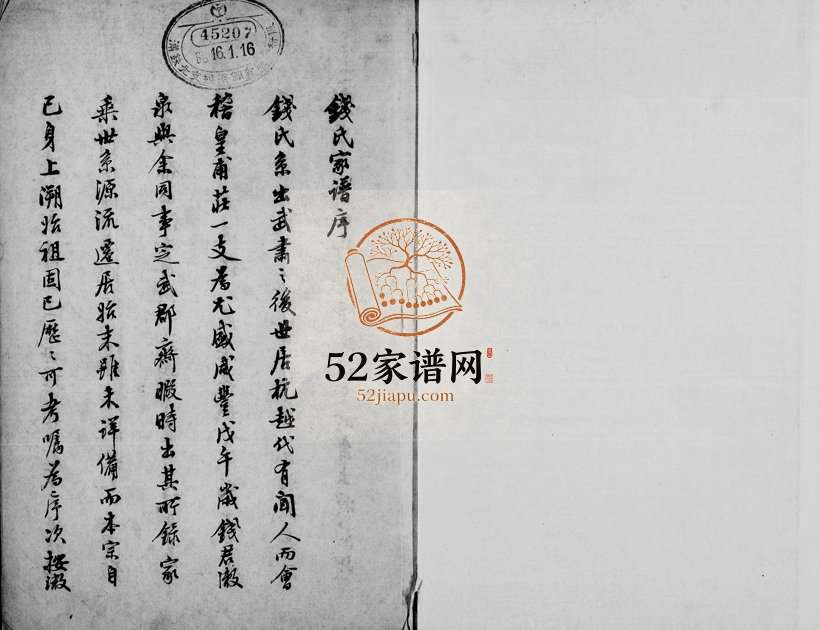 錢氏家譜序
錢氏系出武肅〻後世居杭越代有聞人而會
稽皇甫莊一支為尤盛咸豐戊午歲錢君漵
泉與余同事定武郡齋暇時出其所錄家
乘世系源流遷居始末雖未詳備而本宗自
已身上溯始祖固已歷〻可考囑為序次按漵
45207
16.1.16
52家谱网
52jiapu.com